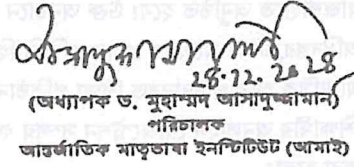 ২৪.১২.২০২৪
(অধ্যাপক ড. মুহাম্মদ আসাদুজ্জামান)
পরিচালক
আন্তর্জাতিক মাতৃভাষা ইনস্টিটিউট (আমাই)